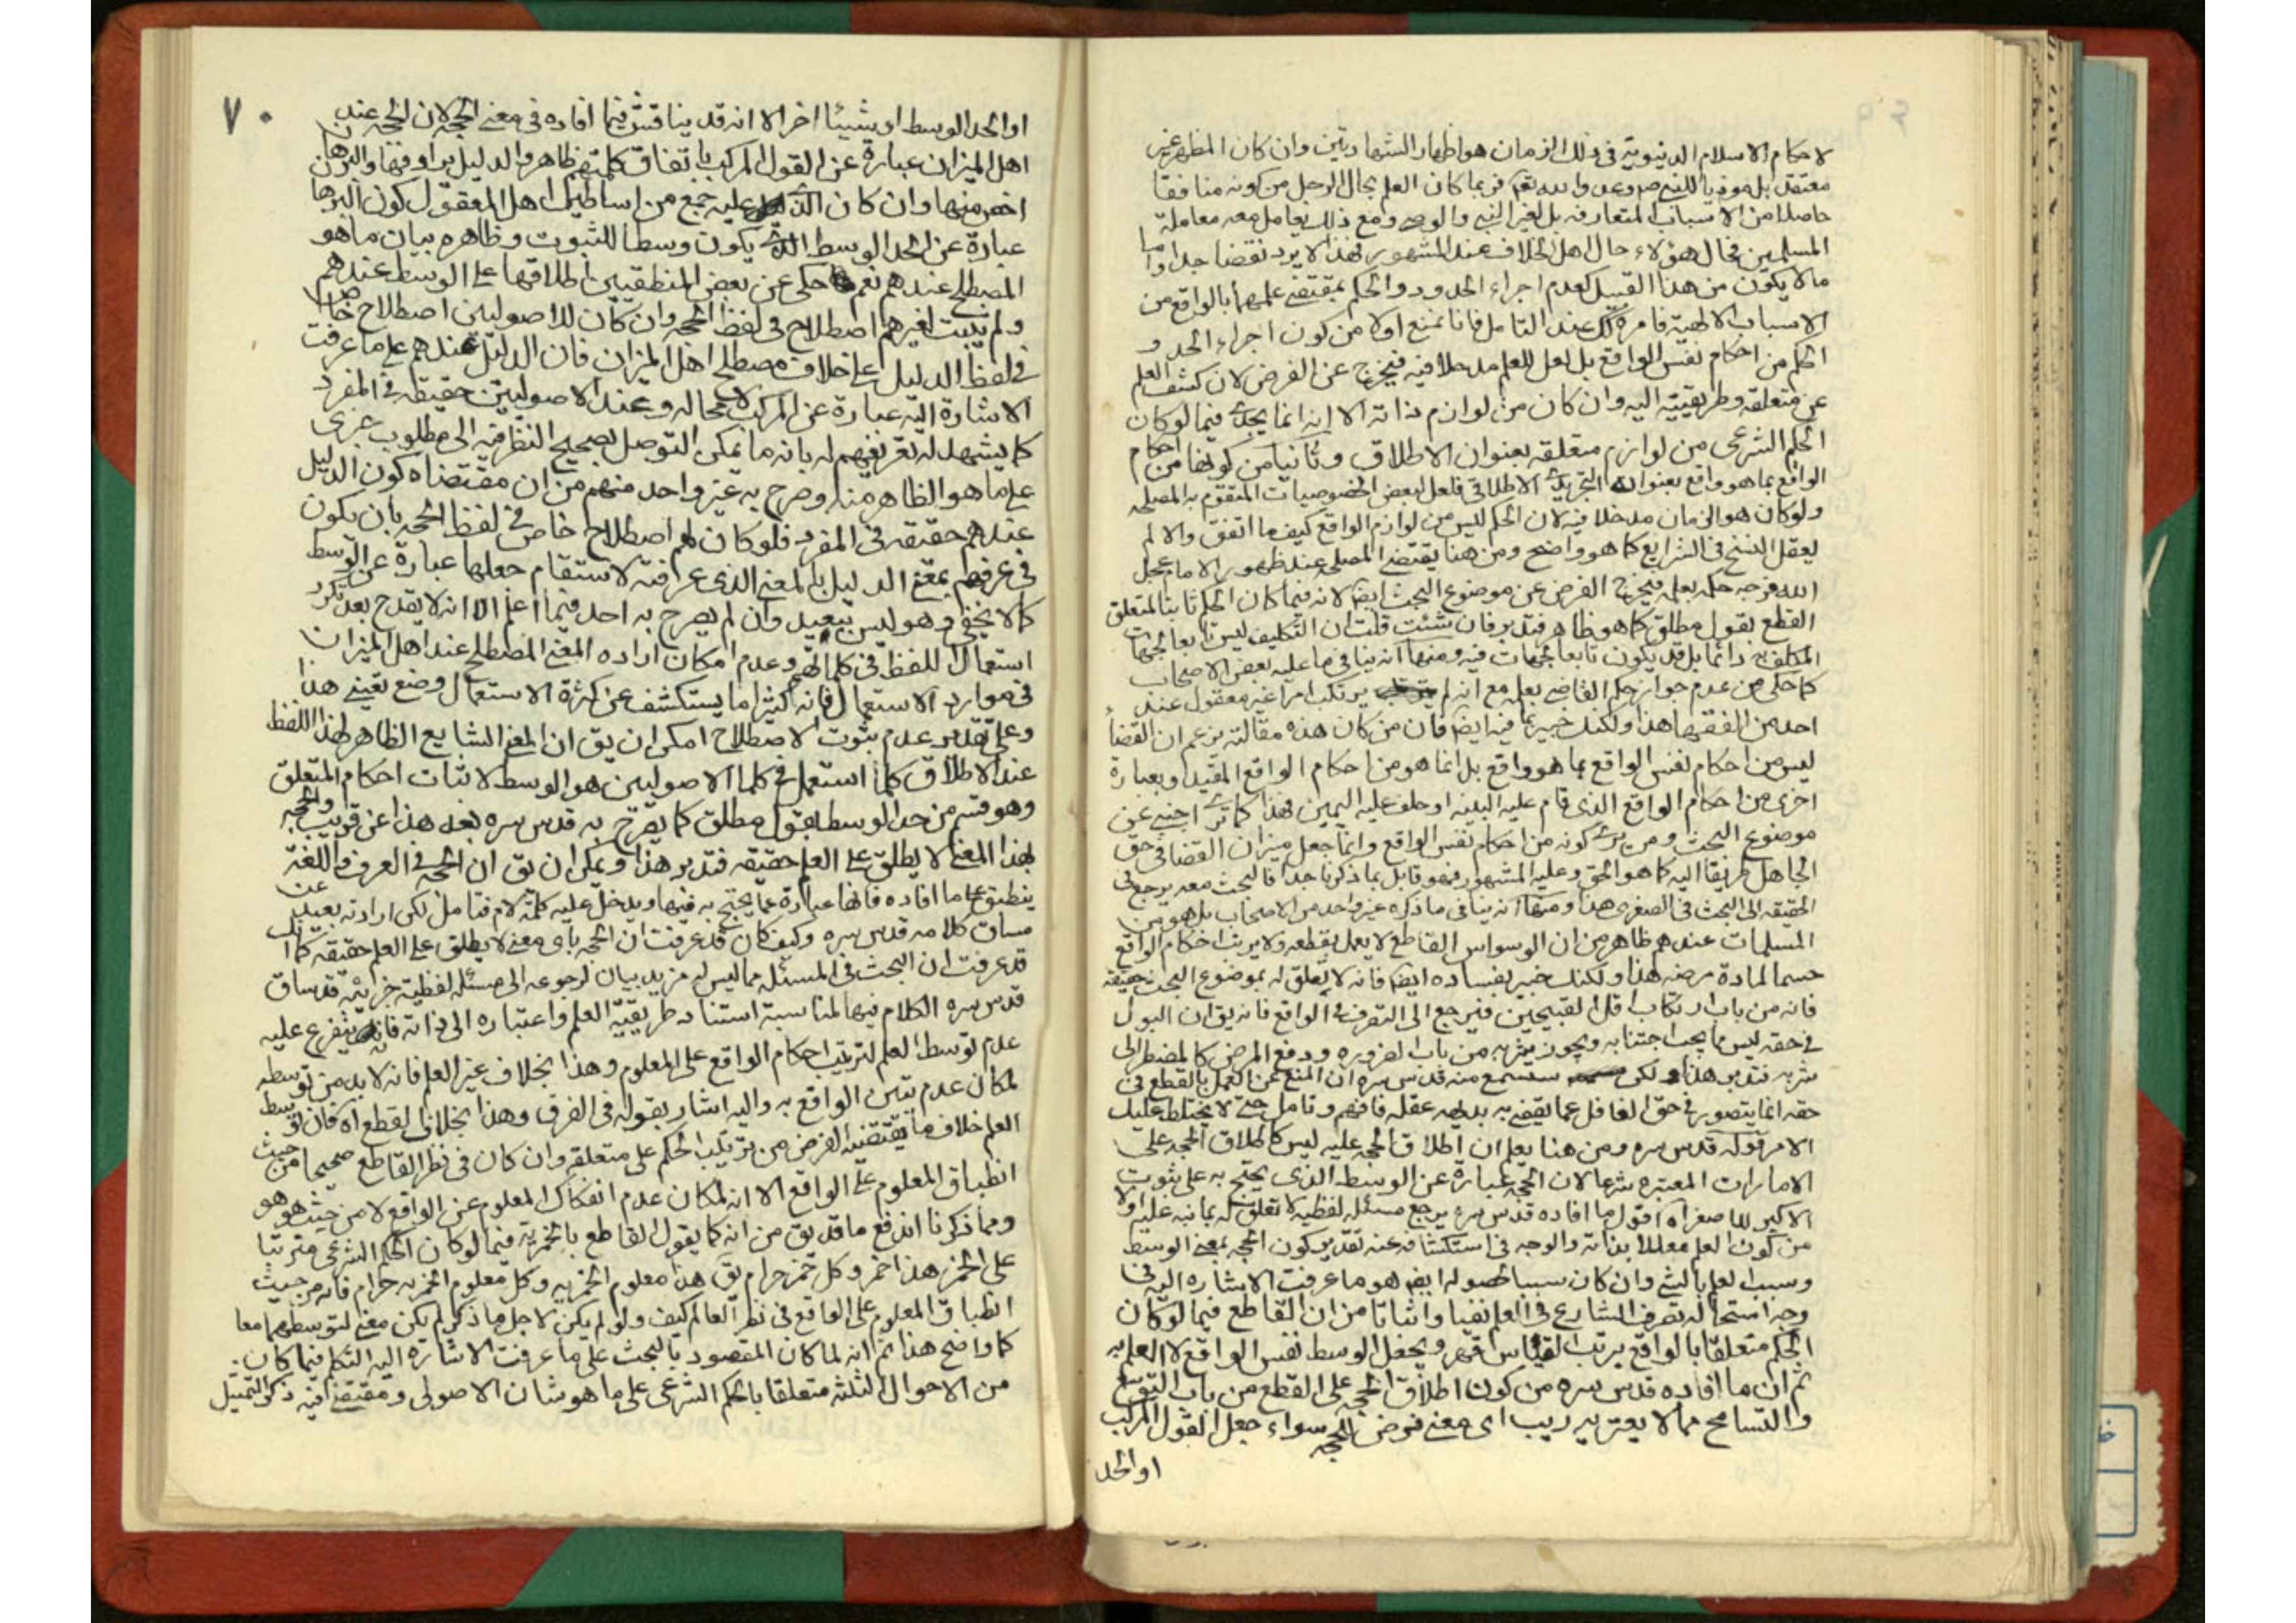 لاحكام الاسلام الدنيوية فى ذلك الزمان هو اظهار الشهادتين وان كان المظهر غير
معتقد بل موذيا للنبى ص وعد والله تعم فربما كان العلم بحال الرجل من كونه منافقا
حاصلا من الاسباب المتعارفه بل لغير النبى والوصى ومع ذلك يعامل معه معاملة
المسلمين فحال هؤلاء حال اهل الخلاف عند المشهور فهذا لا يرد نقضا جدا واما
ما لا يكون من هذا القبيل كعدم اجراء الحدود والحكم بمقتضى علمهما بالواقع من
الاسباب الالهية فامره كك عند التامل فانا نمنع اولا من كون اجراء الحد و
الحكم من احكام نفس الواقع بل لعل للعلم مدخلا فيه فيخرج عن الفرض لان كشف العلم
عن متعلقه وطريقيته اليه وان كان من لوازم ذاته الا انه انما يجدى فيما لو كان
الحكم الشرعى من لوازم متعلقه بعنوان الاطلاق وثانيا من كونها من احكام
الواقع بما هو واقع بعنوان التجريد الاطلاقى فلعل لبعض الخصوصيات المتقوم به المصلحه
ولو كان هو الزمان مدخلا فيه لان الحكم ليس من لوازم الواقع كيف ما اتفق والا لم
يعقل النسخ فى الشرايع كما هو واضح ومن هنا يقتضى المصلحه عند ظهور الامام عجل
الله فرجه حكمه بعلمه فيخرج الفرض عن موضوع البحث ايضا لانه فيما كان الحكم ثابتا لمتعلق
القطع بقول مطلق كما هو ظاهر فتدبر فان شئت قلت ان التكليف ليس تابعا لجهات
المكلف به دائما بل قد يكون تابعا لجهات فيه ومنها انه ينافى ما عليه بعض الاصحاب
كما حكى من عدم جواز حكم القاضى بعلمه مع انه لم يرتكب امرا غير معقول عند
احد من الفقهاء هذا ولكنك خبير بما فيه ايضا فان من كان هذه مقالته يزعم ان القضاء
ليس من احكام نفس الواقع بما هو واقع بل انما هو من احكام الواقع المقيد وبعبارة
اخرى من احكام الواقع الذى قام عليه البينه او حلف عليه اليمين فهذا كما ترى اجنبى عن
موضوع البحث ومن يرى كونه من احكام نفس الواقع وانما جعل ميزان القضا فى حق
الجاهل طريقا اليه كما هو الحق وعليه المشهور فهو قابل بما ذكرنا جدا فالبحث معه يرجع فى
الحقيقه الى البحث فى الصغرى هذا ومنها انه ينافى ما ذكره غير واحد من الاصحاب بل هو من
المسلمات عندهم ظاهر من ان الوسواس القاطع لا يعمل بقطعه ولا يرتب احكام الواقع
حسما لمادة مرضه هذا ولكنك خبير بفساده ايضا فانه لا تعلق له بموضوع البحث حقيقه
فانه من باب ارتكاب اقل القبيحين فيرجع الى التصرف فى الواقع فانه يق ان البول
فى حقه ليس مما يجب اجتنابه ويجوز شربه من باب الضروره ودفع المرض كالمضطر الى
شربه فتدبر هذا ولكن ستسمع منه قدس سره ان المنع عن العمل بالقطع فى
حقه انما يتصور فى حق الغافل عما يقضى به بداهه عقله فافهم وتامل حتى لا يختلط عليك
الامر قوله قدس سره ومن هنا يعلم ان اطلاق الحجه عليه ليس كاطلاق الحجه على
الامارات المعتبره شرعا لان الحجه عبارة عن الوسط الذى يحتج به على ثبوت
الاكبر للاصغر اه اقول ما افاده قدس سره يرجع مسئله لفظيه لا تعلق له بما نبه عليه اولا
من كون العلم معللا بذاته والوجه فى استكشافه عنه تقدير كون الحجه بمعنى الوسط
وسبب العلم بالشئ وان كان سببا لحصوله ايضا هو ما عرفت الاشاره اليه فى
وجه استحاله تصرف الشارع فى العلم نفيا واثباتا من ان القاطع فيما لو كان
الحكم متعلقا بالواقع يرتب القياس قهرا ويجعل الوسط نفس الواقع لا العلم به
ثم ان ما افاده قدس سره من كون اطلاق الحجه على القطع من باب التوسع
والتسامح مما لا يعتريه ريب اى معنى فرض للحجه سواء جعل القول المركب
او الحد
٧٠
او الحد الوسط او شيئا اخر الا انه قد يناقش فيما افاده فى معنى الحجه لان الحجه عند
اهل الميزان عبارة عن القول المركب باتفاق كلمتهم ظاهرا والدليل يرادفها والبرهان
اخص منها وان كان الذى عليه جمع من اساطين اهل المعقول كون البرهان
عبارة عن الحد الوسط الذى يكون وسطا للثبوت وظاهره بيان ما هو
المصطلح عندهم نعم حكى عن بعض المنطقيين اطلاقها على الوسط عندهم
ولم يثبت لغيرهم اصطلاح فى لفظ الحجه وان كان للاصوليين اصطلاح خاص
فى لفظ الدليل على خلاف مصطلح اهل الميزان فان الدليل عندهم على ما عرفت
الاشارة اليه عبارة عن المركب لا محاله وعند الاصوليين حقيقه فى المفرد
كما يشهد له تعريفهم له بانه ما يمكن التوصل بصحيح النظر فيه الى مطلوب خبرى
على ما هو الظاهر منه وصرح به غير واحد منهم من ان مقتضاه كون الدليل
عندهم حقيقه فى المفرد فلو كان لهم اصطلاح خاص فى لفظ الحجه بان يكون
فى عرفهم بمعنى الدليل بالمعنى الذى عرفته لاستقام جعلها عبارة عن الوسط
كما لا يخفى وهو ليس ببعيد وان لم يصرح به احد فيما اعلم الا انه لا يقدح بعد تكرر
استعمال اللفظ فى كلماتهم وعدم امكان اراده المعنى المصطلح عند اهل الميزان
فى موارد الاستعمال فانه كثيرا ما يستكشف عن كثرة الاستعمال وضع تعينى هذا
وعلى تقدير عدم ثبوت الاصطلاح امكن ان يق ان المعنى الشايع الظاهر لهذا اللفظ
عند الاطلاق كلما استعمل فى كلمات الاصوليين هو الوسط لاثبات احكام المتعلق
وهو قسم من حد الوسط بقول مطلق كما يصرح به قدس سره بعد هذا عن قريب والحجه
بهذا المعنى لا يطلق على العلم حقيقه فتدبر هذا ويمكن ان يق ان الحجه فى العرف واللغة
ينطبق على ما افاده فانها عبارة عما يحتج به فيها ويدخل عليه كلمة لام فتامل لكن ارادته بعيد عن
مساق كلامه قدس سره وكيف كان قد عرفت ان الحجه باى معنى لا يطلق على العلم حقيقه كما انك
قد عرفت ان البحث فى المسئله مما ليس له مزيد بيان لرجوعه الى مسئله لفظية جزئيه قد ساق
قدس سره الكلام فيها لمناسبة استناد طريقيه العلم واعتباره الى ذاته فانه يتفرع عليه
عدم توسط العلم لترتيب احكام الواقع على المعلوم وهذا بخلاف غير العلم فانه لا بد من توسطه
لمكان عدم تبين الواقع به واليه اشار بقوله فى الفرق وهذا بخلاف القطع اه فان توسط
العلم خلاف ما يقتضيه الفرض من ترتيب الحكم على متعلقه وان كان فى نظر القاطع صحيحا من حيث
انطباق المعلوم على الواقع الا انه لمكان عدم انفكاك المعلوم عن الواقع لا من حيث هو هو
ومما ذكرنا اندفع ما قد يق من انه كما يقول القاطع بالخمريه فيما لو كان الحكم الشرعى مترتبا
على الخمر هذا خمر وكل خمر حرام يق هذا معلوم الخمريه وكل معلوم الخمريه حرام فانه من حيث
انطباق المعلوم على الواقع فى نظر العالم كيف ولو لم يكن لاجل ما ذكر لم يكن معنى لتوسطهما معا
كما واضح هذا ثم انه لما كان المقصود بالبحث على ما عرفت الاشارة اليه التكلم فيما كان
من الاحوال الثلثه متعلقا بالحكم الشرعى على ما هو شان الاصولى ومقتضى فيه ذكر التمثيل